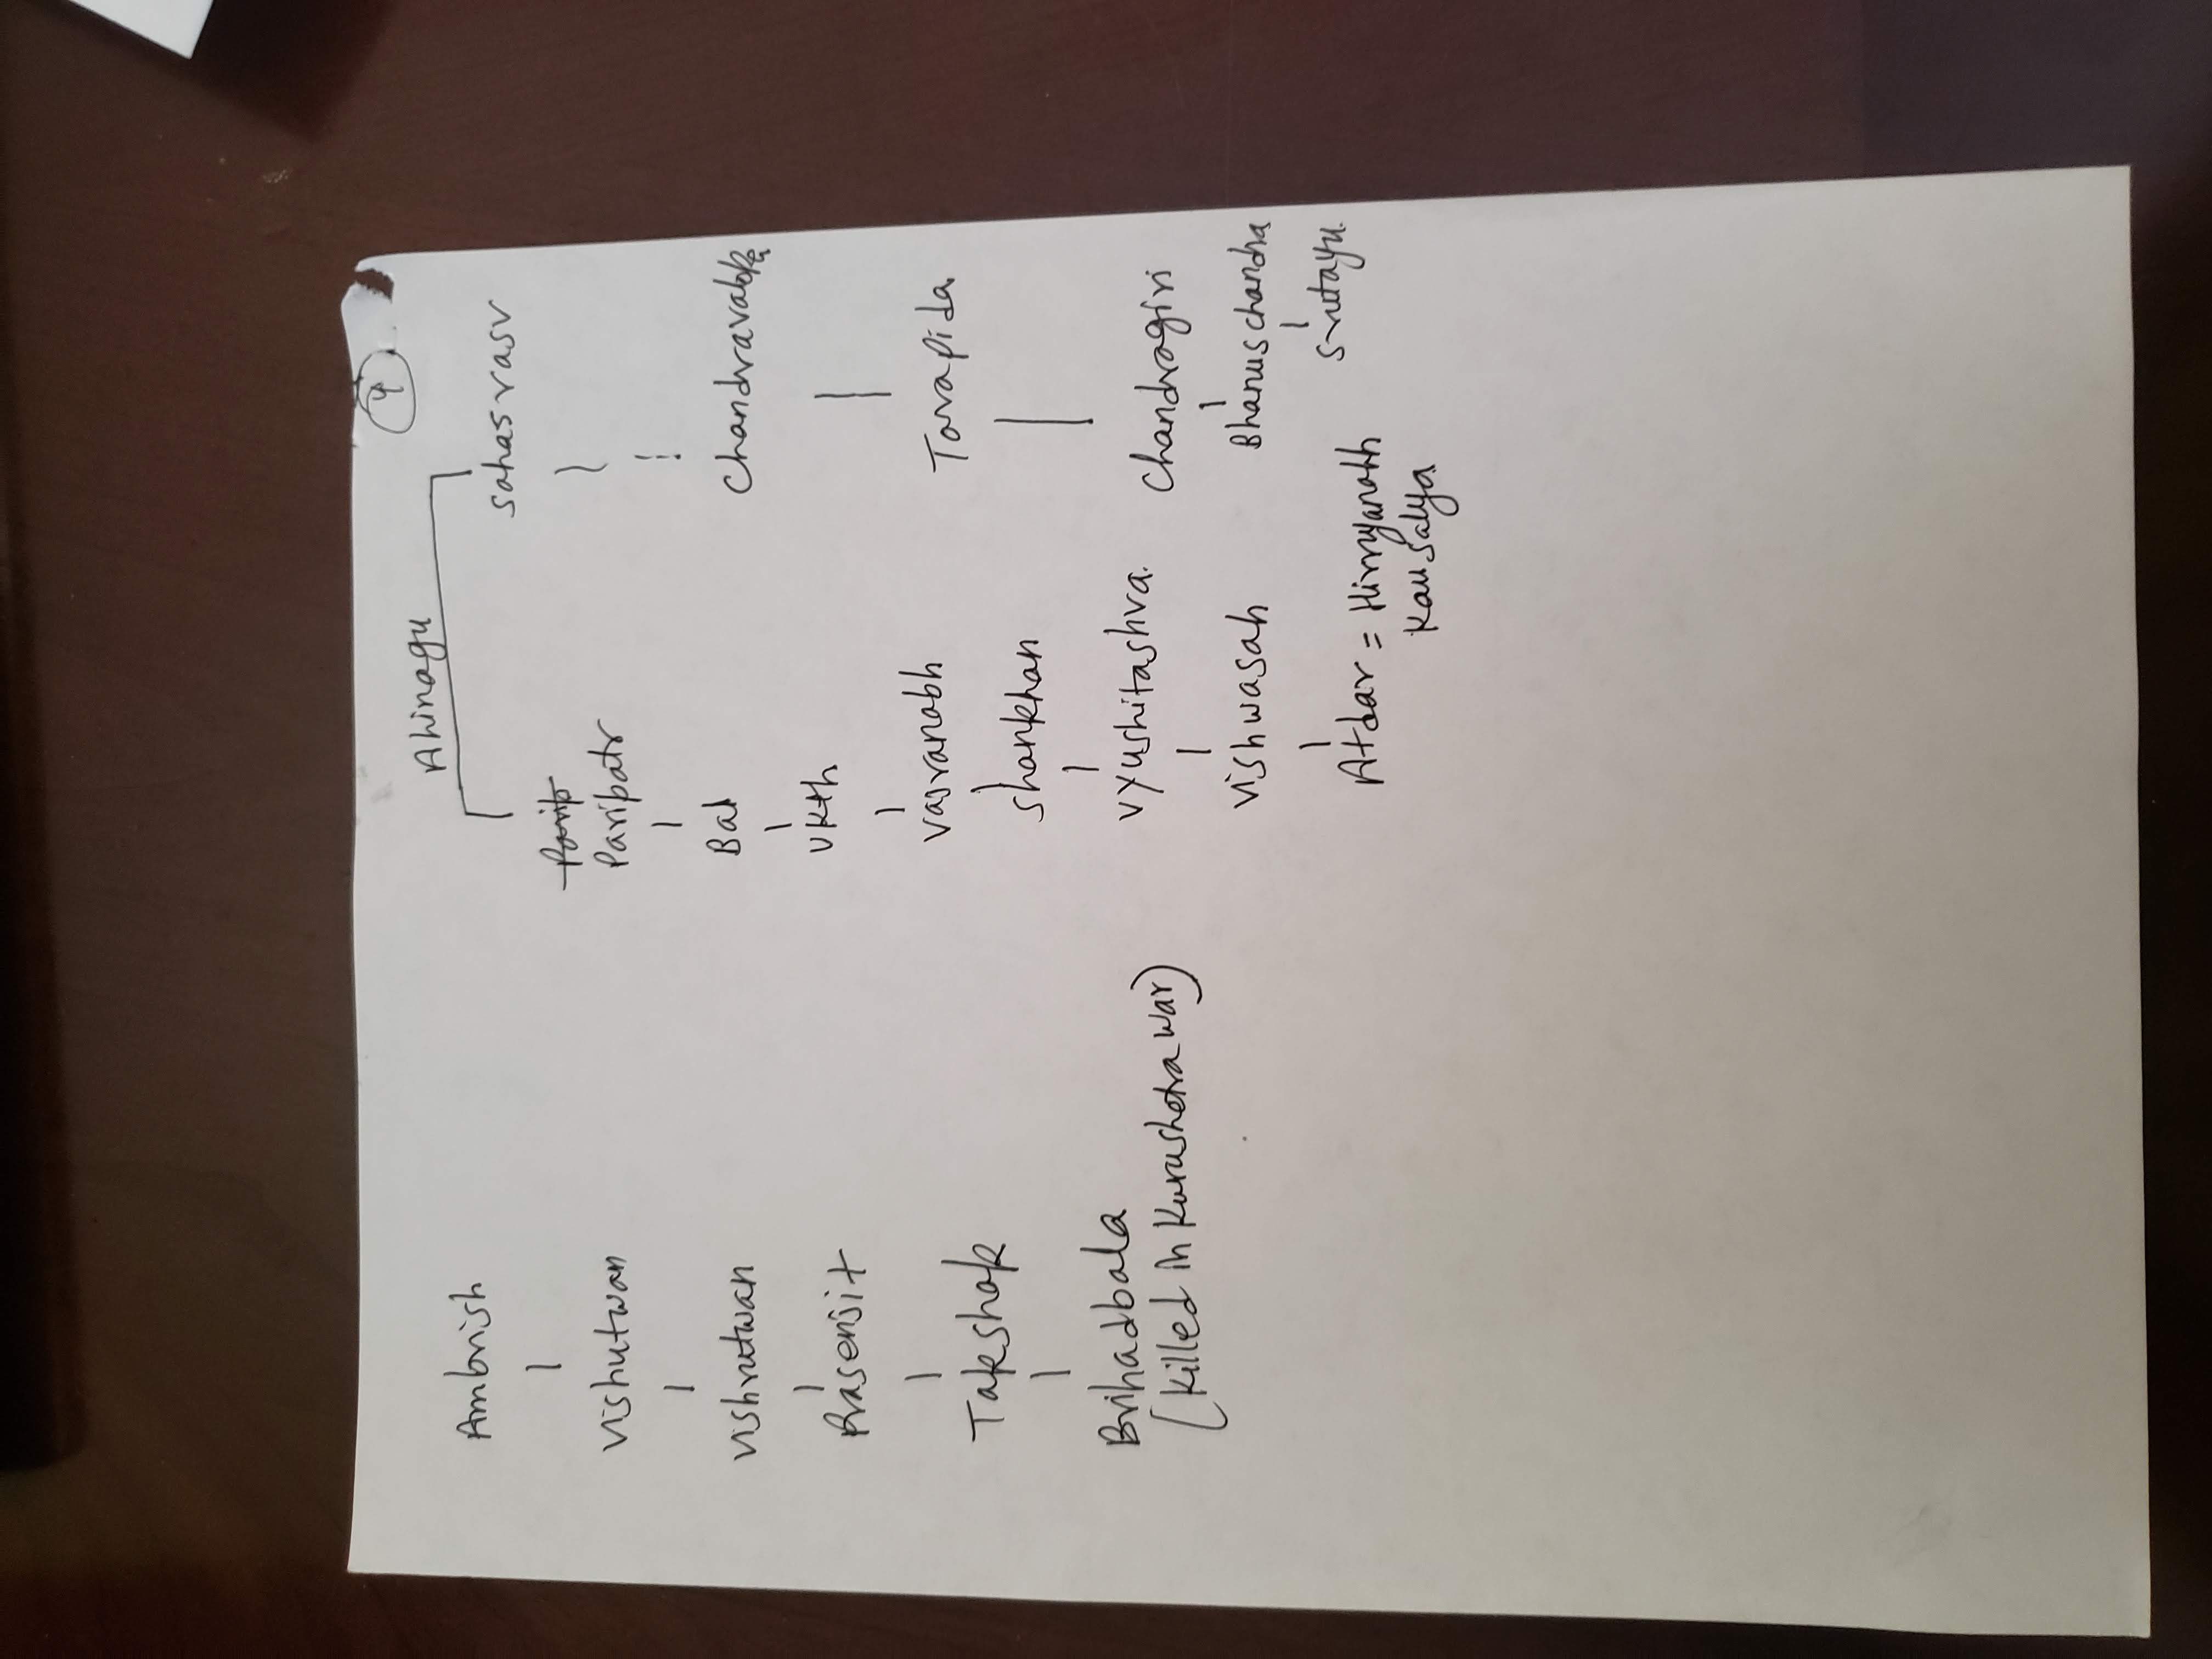 4
Ambrish
Vishutwan
Vishrutwan
Prasenjit
Takshak
Brihadbala
(killed in Kurushetra war)
Ahinagu
Parip
Paripatr
Bal
Ukth
Vasranabh
Shankhan
Vyushitashva.
Vishwasah
Atdar = Hirnyanabh
Kausalya
Sahasrasv
Chandravaloka
Tarapida
Chandragiri
Bhanuschandra
Srutayu.